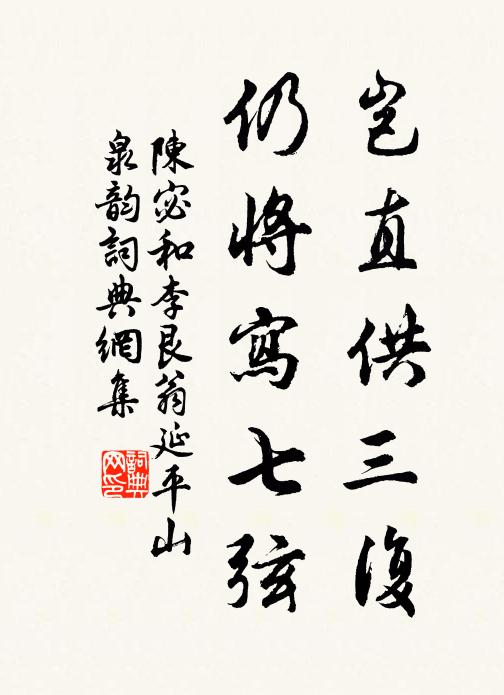 豈直供三復
仍將寫七弦
陳宓和李艮翁延平山
泉韵詞典網集
詞典网印